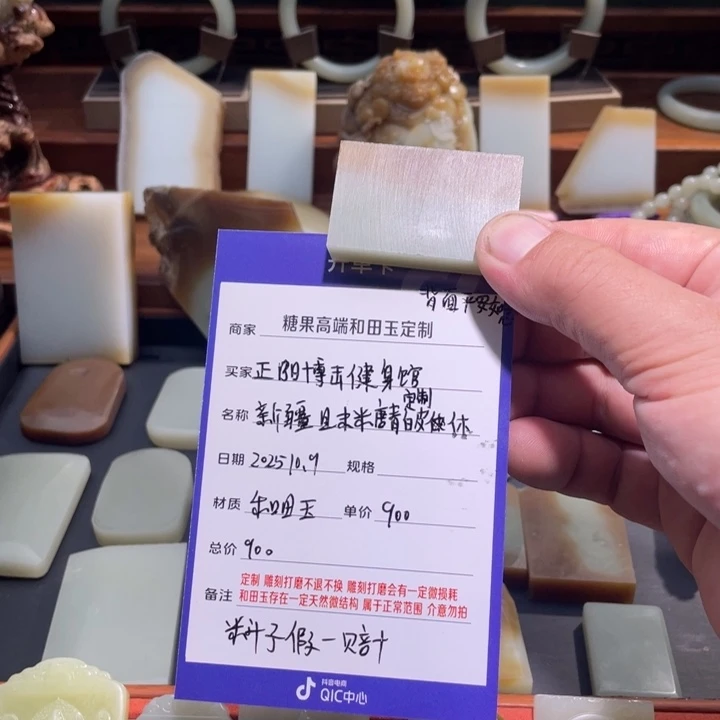 开单卡
背面平安如意
商家 糖果高端和田玉定制
买家 正阳博击健身馆
定制
名称 新疆且末米精皮
日期 2025 10.9 规格
材质 和田玉 单价 900
总价 900
定制 雕刻打磨不退不换 雕刻打磨会有一定微损耗
备注 和田玉存在一定天然微结构 属于正常范围 介意勿拍
料子假一赔十
抖音电商
QIC中心